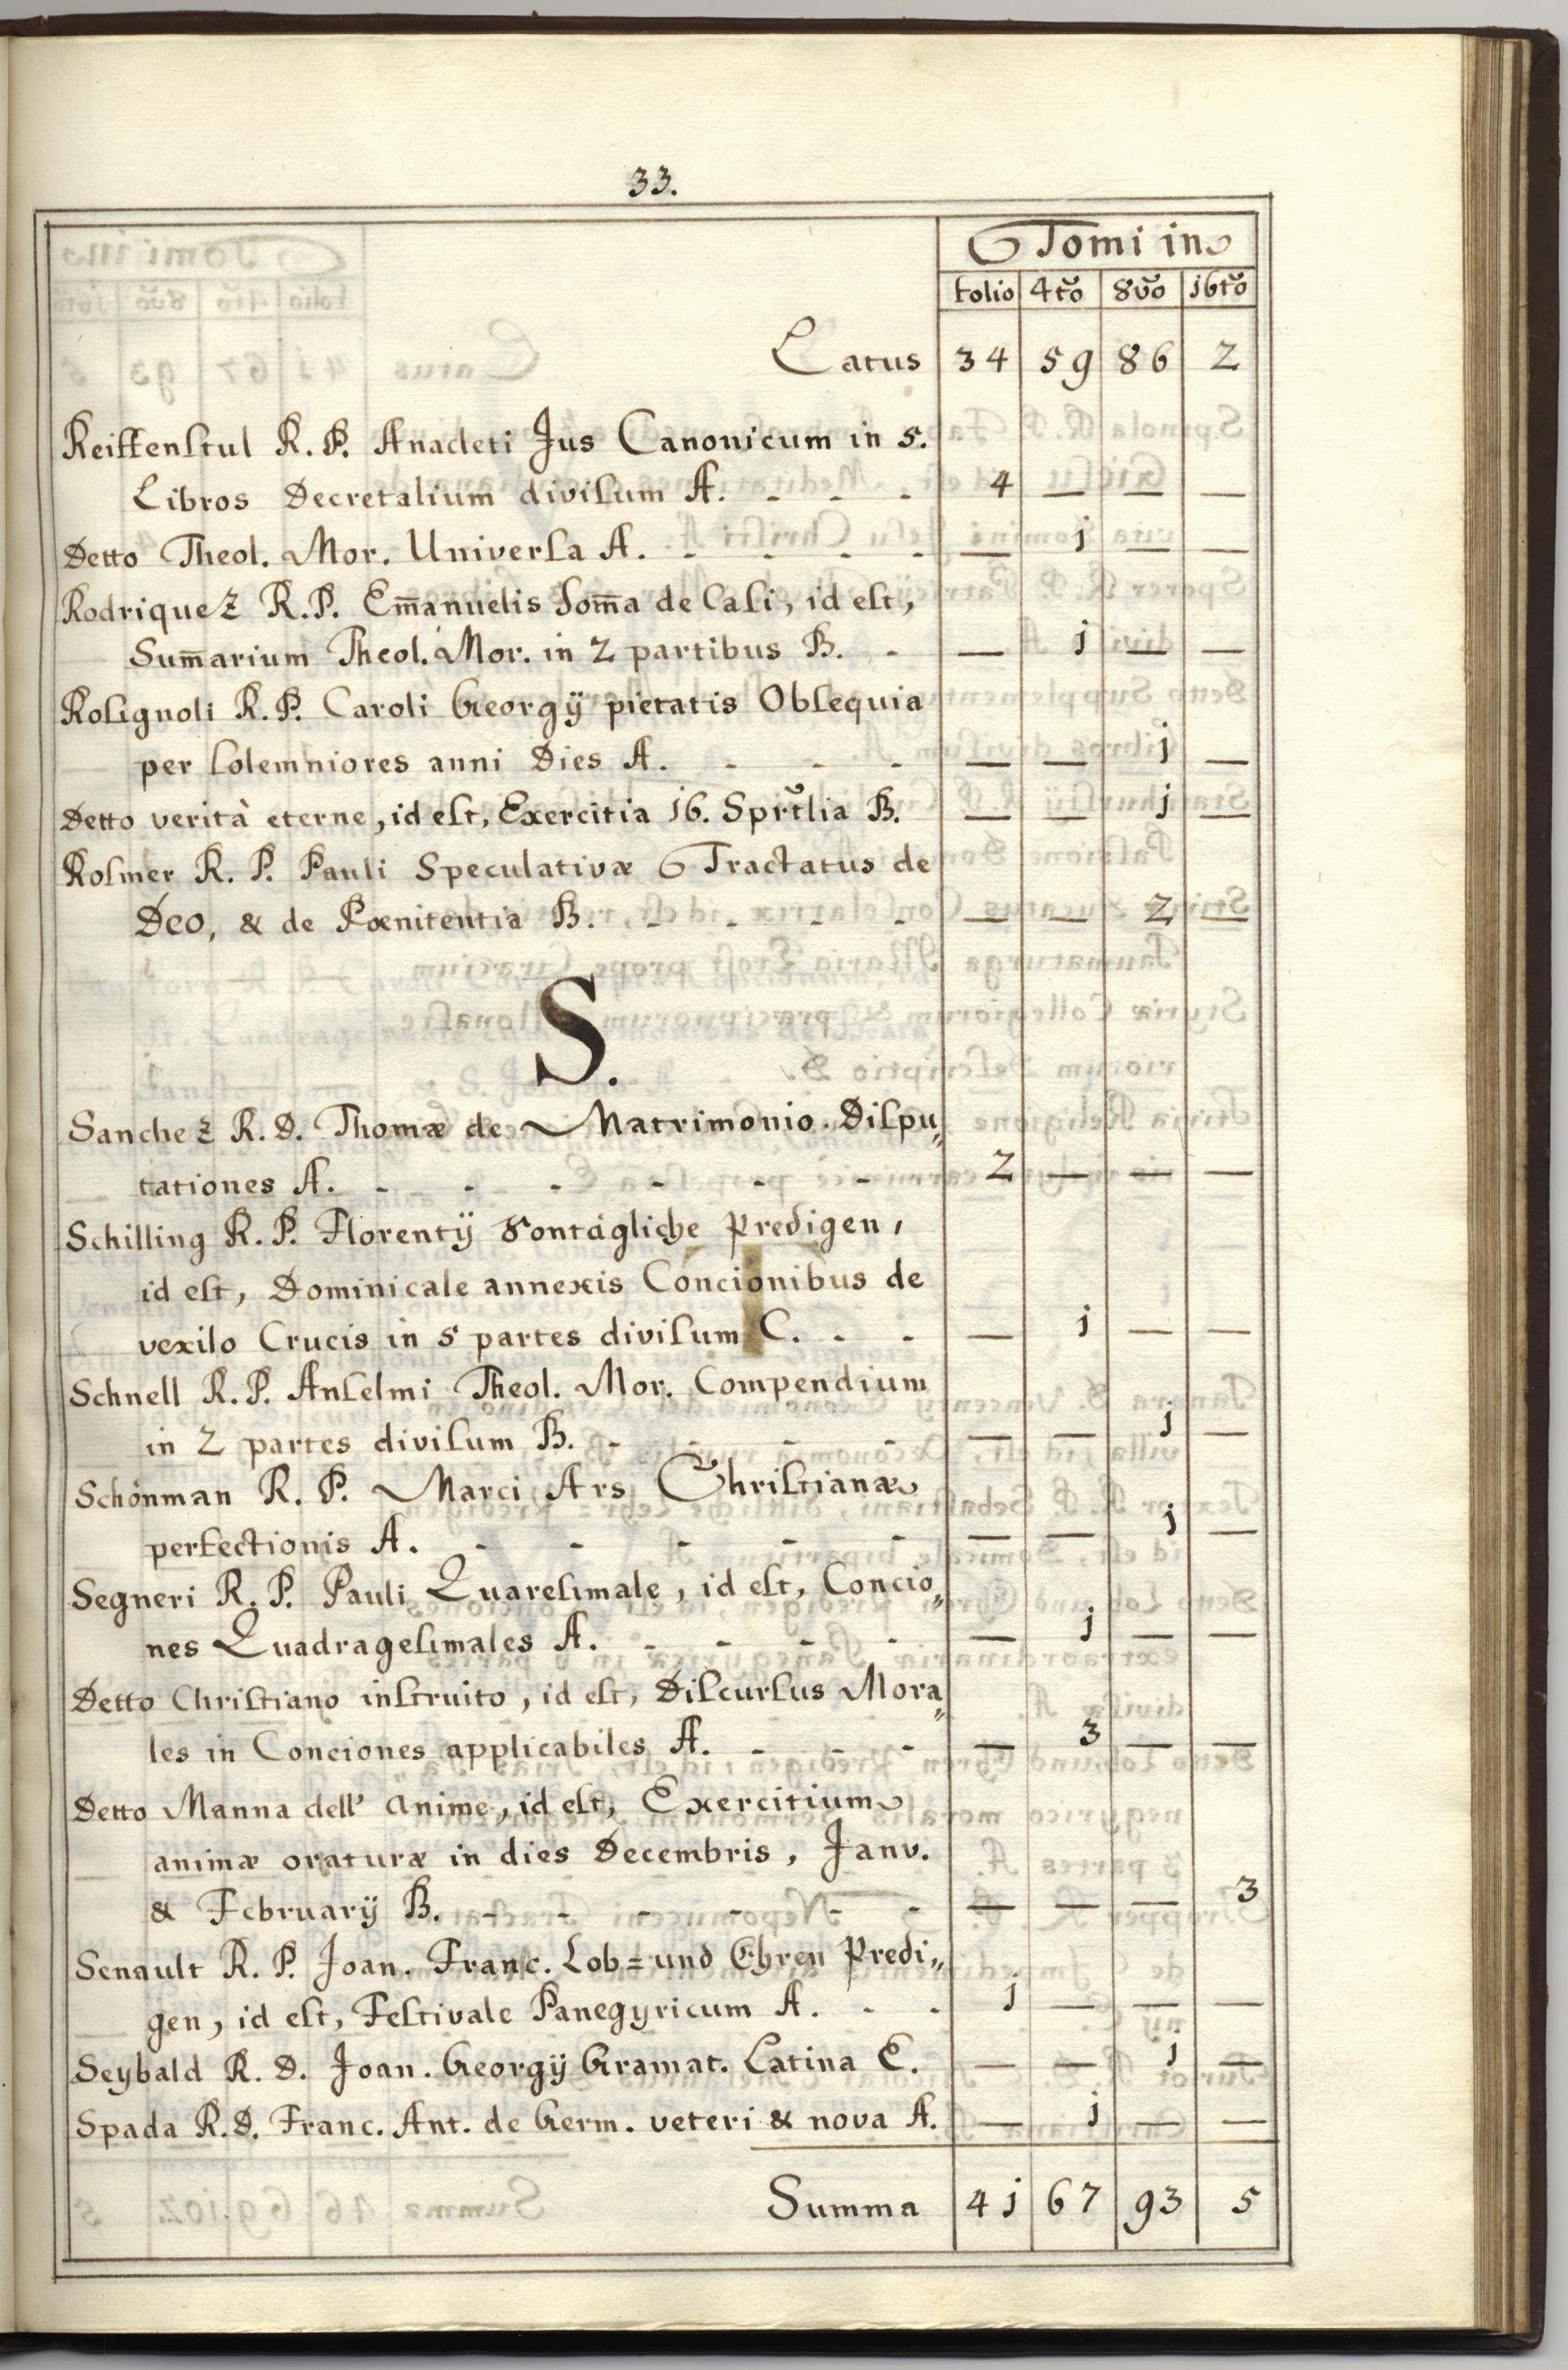 33.
Tomi in
folio 4tõ 8vo 16tõ
Latus 34 59 86 2
Reiffenstul R. P. Anacleti Jus Canonicum in 5.
Libros Decretalium divisum A. - - - 4 — — —
Detto Theol. Mor. Universa A. - - - - — 1 — —
Rodriquez R. P. Em̄anuelis Som̄a de Casi, id est,
Sum̄arium Theol. Mor. in 2 partibus B. - — 1 — —
Rosignoli R. P. Caroli Georgÿ pietatis Obsequia
per solemniores anni Dies A. - - - — — 1 —
Detto verità eterne, id est, Exercitia 16. Sprt̃lia B. — — 1 —
Rosmer R. P. Pauli Speculativæ Tractatus de
Deo, & de Pœnitentia B. - - - - — — 2 —
S.
Sanchez R. D. Thomæ de Matrimonio Dispu„
tationes A. - - - - - - 2 — — —
Schilling R. P. Florentÿ Sontägliche Predigen,
id est, Dominicale annexis Concionibus de
vexilo Crucis in 5 partes divisum C. - - — 1 — —
Schnell R. P. Anselmi Theol. Mor. Compendium
in 2 partes divisum B. - - - - — — 1 —
Schönman R. P. Marci Ars Christianæ
perfectionis A. - - - - - — — 1 —
Segneri R. P. Pauli Quaresimale, id est, Concio„
nes Quadragesimales A. - - - - — 1 — —
Detto Christiano instruito, id est, Discursus Mora„
les in Conciones applicabiles A. - - - — 3 — —
Detto Manna dell' anime, id est, Exercitium
animæ oraturæ in dies Decembris, Janv.
& Februarÿ B. - - - - - - — — — 3
Senault R. P. Joan. Franc. Lob= und Ehren Predi„
gen, id est, Festivale Panegyricum A. - - 1 — — —
Seybald R. D. Joan. Georgÿ Gramat. Latina E. — — 1 —
Spada R. D. Franc. Ant. de Germ. veteri & nova A. — 1 — —
Summa 41 67 93 5